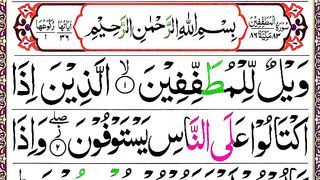 سُورَةُ الْمُطَفِّفِينَ بِسْمِ اللّٰهِ الرَّحْمٰنِ الرَّحِيْمِ اٰيَاتُهَا ٣٦ رُكُوْعُهَا ١
وَيْلٌ لِّلْمُطَفِّفِيْنَ ۙ‏ ١ الَّذِيْنَ اِذَا
اكْتَالُوْا عَلَى النَّاسِ يَسْتَوْفُوْنَ ۖ ٢ وَاِذَا